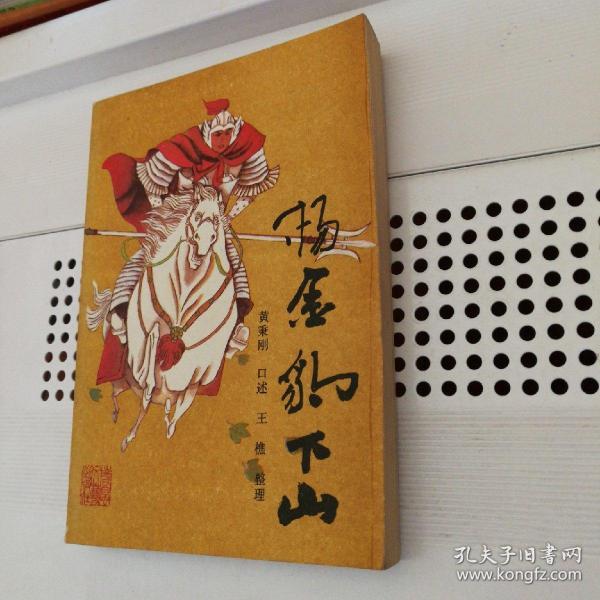 杨金豹下山
黄秉刚 口述 王樵 整理
孔夫子旧书网
www.kongfz.com